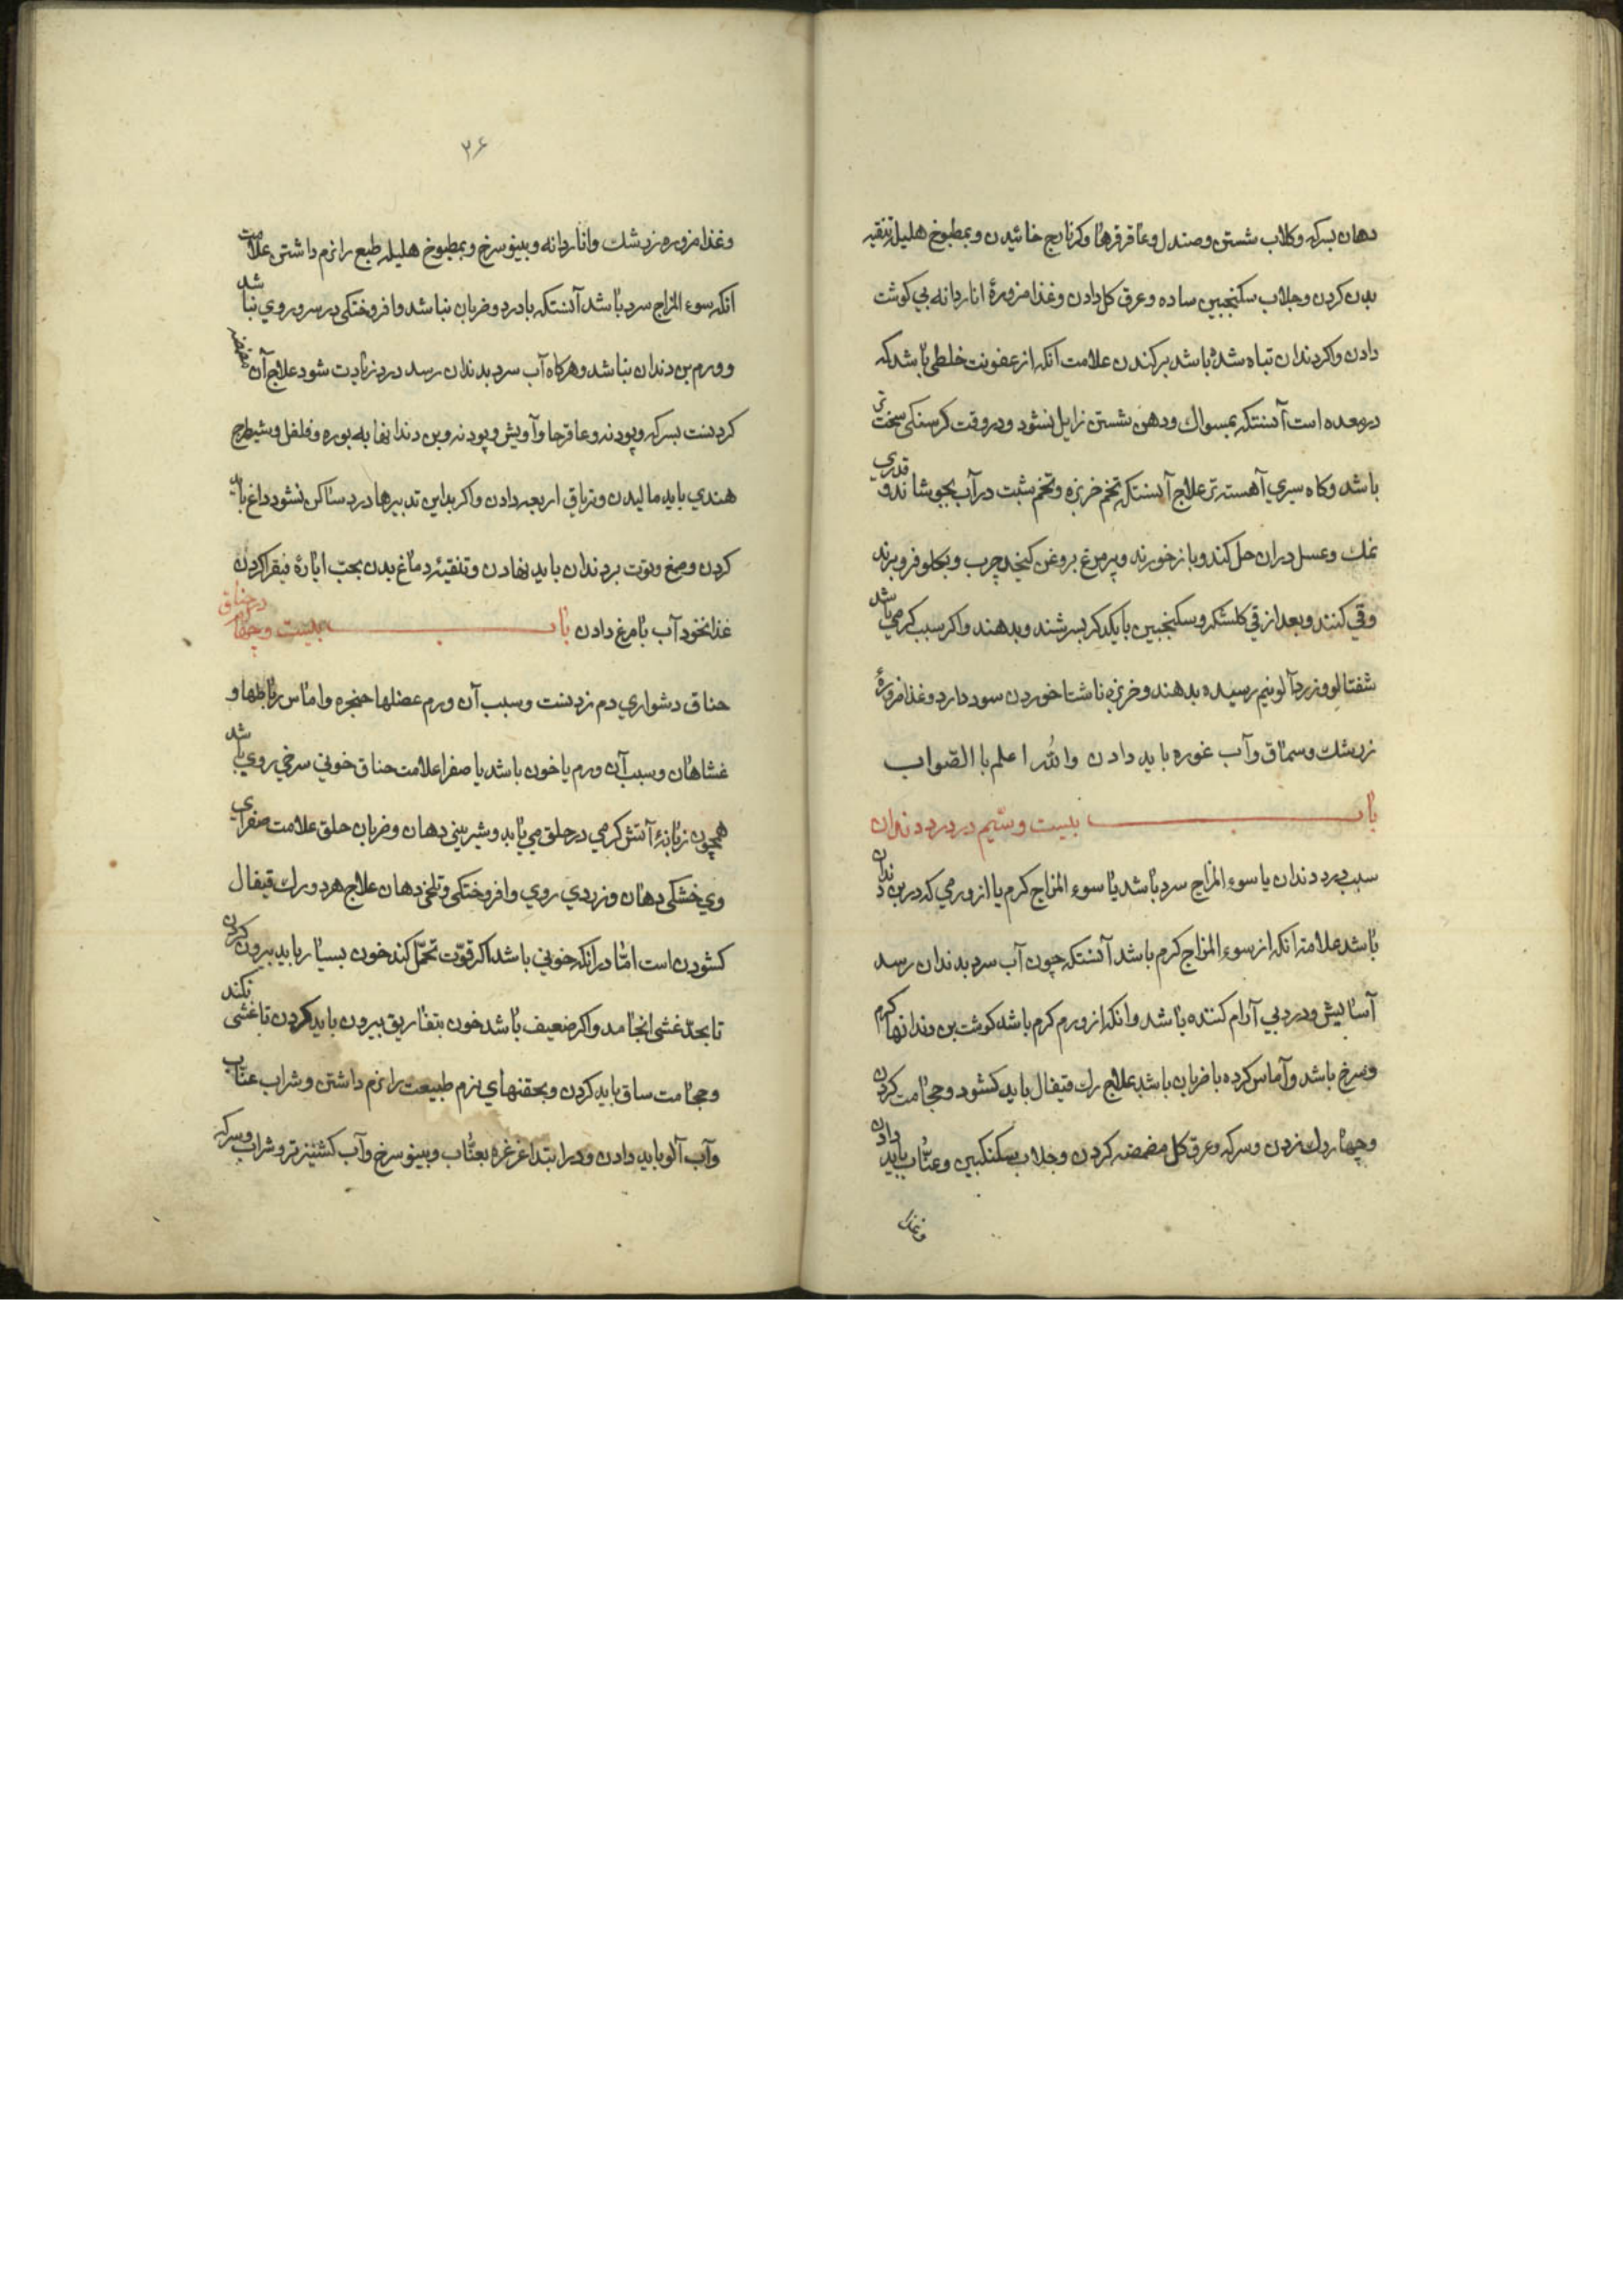 دهان بسرکه وکلاب شستن وصندل وعاقرقرها وکرنازج خائیدن وبمطبوخ هلیله تنقیه
بدن کردن وجلاب سکنجبین ساده وعرق کل دادن وغذا مزورهٔ اناردانه بي کوشت
دادن واکر دندان تباه شده باشد برکندن علامت آنکه از عفونت خلطی باشد که
در معده است آنستکه بمسواك ودهن شستن زایل نشود ودر وقت کرسنکی سخت تر
باشد وکاه سیري آهسته تر علاج آنستکه تخم خربزه وتخم شبت در آب بجوشانند وقدري
نمك وعسل دران حل کند وبازخورند وپر مرغ بروغن کنجد چرب وبحلو فروبرند
وقي کنند وبعد از قي کلشکر وسکنجبین بایکدکر بسرشند وبدهند واکر سبب کرمي باشد
شفتالو وزردآلو نیم رسیده بدهند وخربزه ناشتا خوردن سود دارد وغذا مزورهٔ
زرشك وسماق وآب غوره باید دادن والله اعلم با الصّواب
باب بیست وسیم در درد دندان
سبب درد دندان یا سوء المزاج سرد باشد یا سوء المزاج کرم یا از ورمي که در بن دندان
باشد علامت انکه از سوء المزاج کرم باشد آنستکه چون آب سرد بدندان رسد
آسایش ودرد بي آرام کننده باشد وانکه از ورم کرم باشد کوشت بن دندانها کرم
وسرخ باشد وآماس کرده با ضربان باشد علاج رك قیفال باید کشود وحجامت کردن
وچهار رك زدن وسرکه وعرق کل مضمضه کردن وجلاب بسکنکبین وعنّاب باید دادن
وغذا
۲۶
وغذا مزوره زرشك واناردانه وبینو سرخ وبمطبوخ هلیله طبع را نرم داشتن علامت
انکه سوء المزاج سرد باشد آنستکه با درد وضربان نباشد وافروختکی در سر وروي نباشد
وورم بن دندان نباشد وهرکاه آب سرد بدندان رسد درد زیادت شود علاج آن مضمضه
کردنست بسرکه وپودنه وعاقرحا وآویش وپودنه وبن دندانها به بوره وفلفل وشیطرج
هندي باید مالیدن وتریاق اربعه دادن واکر بداین تدبیرها درد ساکن نشود داغ باید
کردن وصمغ وتوت بر دندان باید نهادن وتنقیه دماغ بدن بحبّ ایارهٔ فیقرا کردن
غذا نخود آب با مرغ دادن باب بیست وچهارم در خناق
خناق دشواري دم زدنست وسبب آن ورم عضلها حنجره واماس رباطها و
غشاهان وسبب آن ورم یا خون باشد یا صفرا علامت خناق خوني سرخي روي باشد
همچون زبانهٔ آتش کرمي در حلق مي یابد وشیریني دهان وضربان حلق علامت صفراي
وي خشکی دهان وزردي روي وافروختکی وتلخی دهان علاج هر دو رك قیفال
کشودن است امّا در انکه خوني باشد اکر قوّت تحمّل کند خون بسیار باید بیرون کردن
تا بحدّ غشی انجامد واکر ضعیف باشد خون بتفاریق بیرون باید کردن تا غشی نکند
وحجامت ساق باید کردن وبحقنهاي نرم طبیعت را نرم داشتن وشراب عنّاب
وآب آلو باید دادن ودر ابتدا غرغره بعنّاب وبینو سرخ وآب کشنیز تر وشراب وسرکه